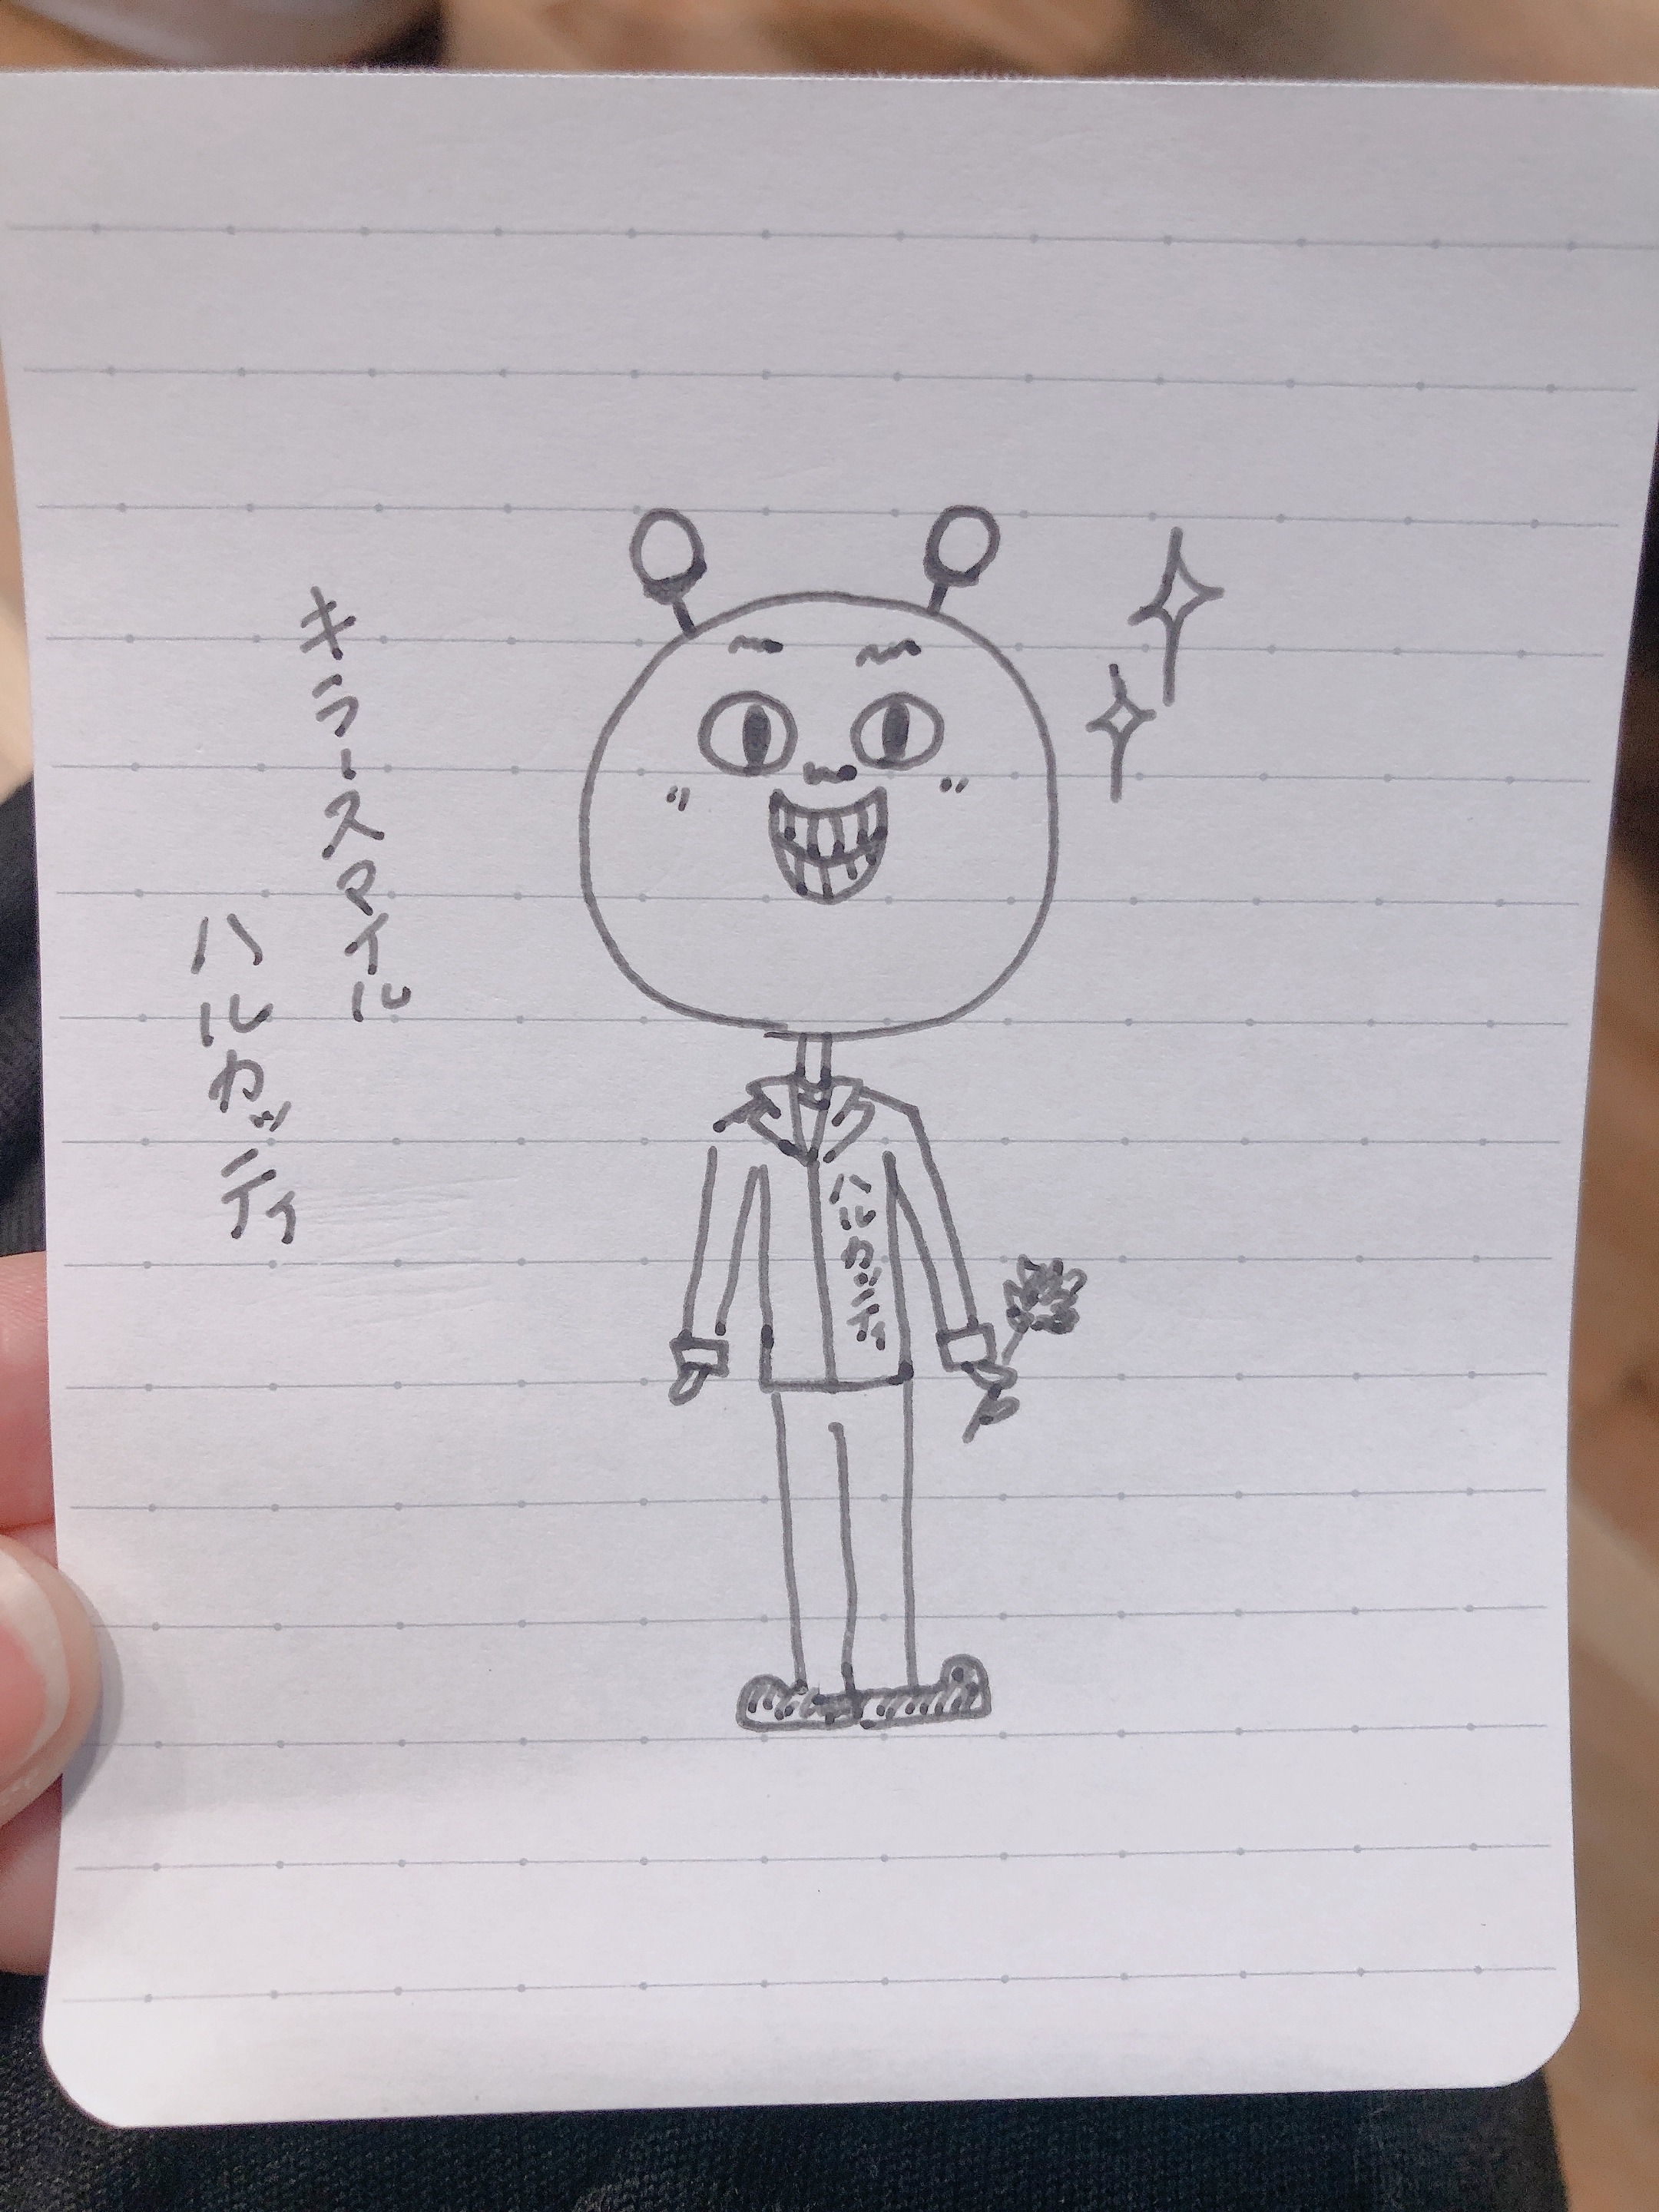 キラースマイル
ハルカッティ
ハルカッティ